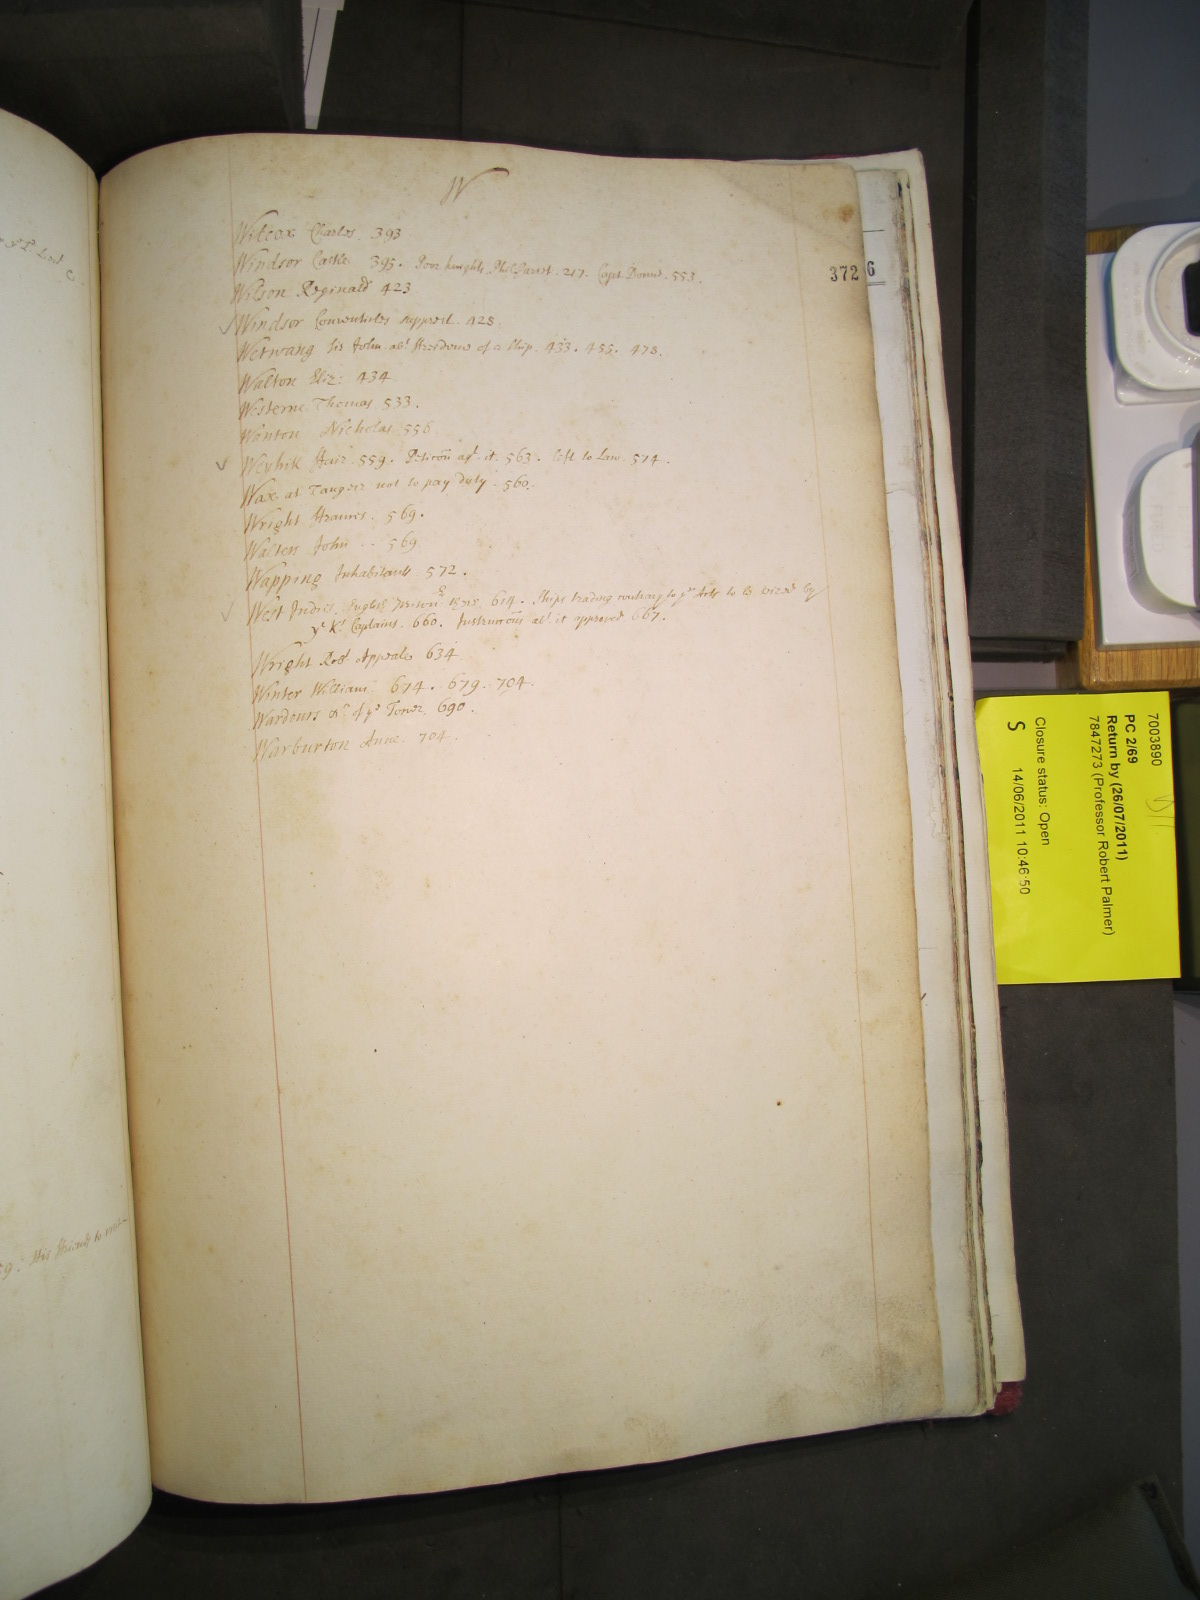 W
Wilcox Charles. 393
Windsor Castle. 395. Poor knights Phil: Laust. 217. Capt Bonns. 553.
372
6
Wilson Reginald 423
Windsor Conventicles supprest. 428.
Wetwang Sir John abt freedome of a Ship. 433. 455. 478.
Walton Eliz: 434
Westerne Thomas 533.
Wonton Nicholas 556
Weyhill Faire. 559. Peticon agt it. 563. left to Law. 574.
Wax at Tangeir not to pay duty. 560.
Wright Frances. 569.
Walters John -- 569
Wapping Inhabitants 572.
West Indies. English 614. Ships trading contrary to ye Acts to be seized by
ye Ks Captains. 660. Instruccons abt it approved 667.
Wright Robt Appeale 634
Winter William. 674. 679. 704.
Wardours of ye Tower. 690.
Warburton Anne. 704.
His friends to
7003890
PC 2/69
Return by (26/07/2011)
7847273 (Professor Robert Palmer)
Closure status: Open
S 14/06/2011 10:46:50